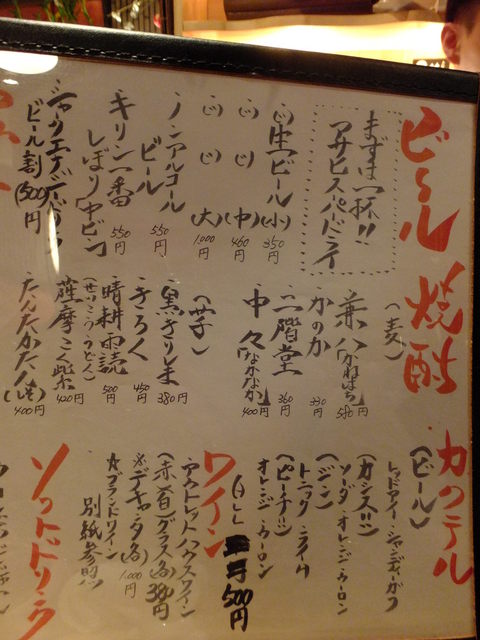 ビール
まずは一杯!!
アサヒスーパードライ
生ビール(小) 350円
〃 〃 (中) 460円
〃 〃 (大) 1,000円
ノンアルコール
ビール 550円
キリン一番
しぼり 中ビン 550円
ビール割(500)円
焼酎
(麦)
兼八(かねはち) 580円
かのか 330円
二階堂 360円
中々(なかなか) 400円
(芋)
黒きりしま 380円
きろく 450円
晴耕雨読 500円
(せいこううどく)
薩摩こく紫 420円
たんたかたん(しそ) 400円
カクテル
(ビール)
レッドアイ・シャンディーガフ
(カシス!!)
ソーダ・オレンジ・ウーロン
(ジン)
トニック・ライム
(ピーチ!!)
オレンジ・ウーロン
500円
ワイン
アウトレットハウスワイン
(赤・白)グラス(各) 380円
※デキャンタ(各) 1,000円
☆ブランドワイン
別紙参照
ソフトドリンク